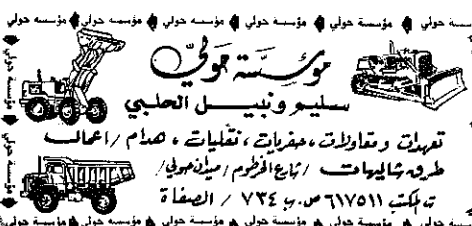 مؤسسة حولي ♦ مؤسسة حولي ♦ مؤسسة حولي ♦ مؤسسة حولي ♦ مؤسسة حولي ♦ مؤسسة حولي
مؤسسة حولي
سليم ونبيل الحلبي
تعهدات ومقاولات، حفريات، نقليات، هدام / اعمال
طرق شاليهات / شارع الخرطوم / ميدان حولي /
ت المكتب ٦١٧٥١١ ص.ب ٧٣٤ / الصفاة
مؤسسة حولي ♦ مؤسسة حولي ♦ مؤسسة حولي ♦ مؤسسة حولي ♦ مؤسسة حولي ♦ مؤسسة حولي